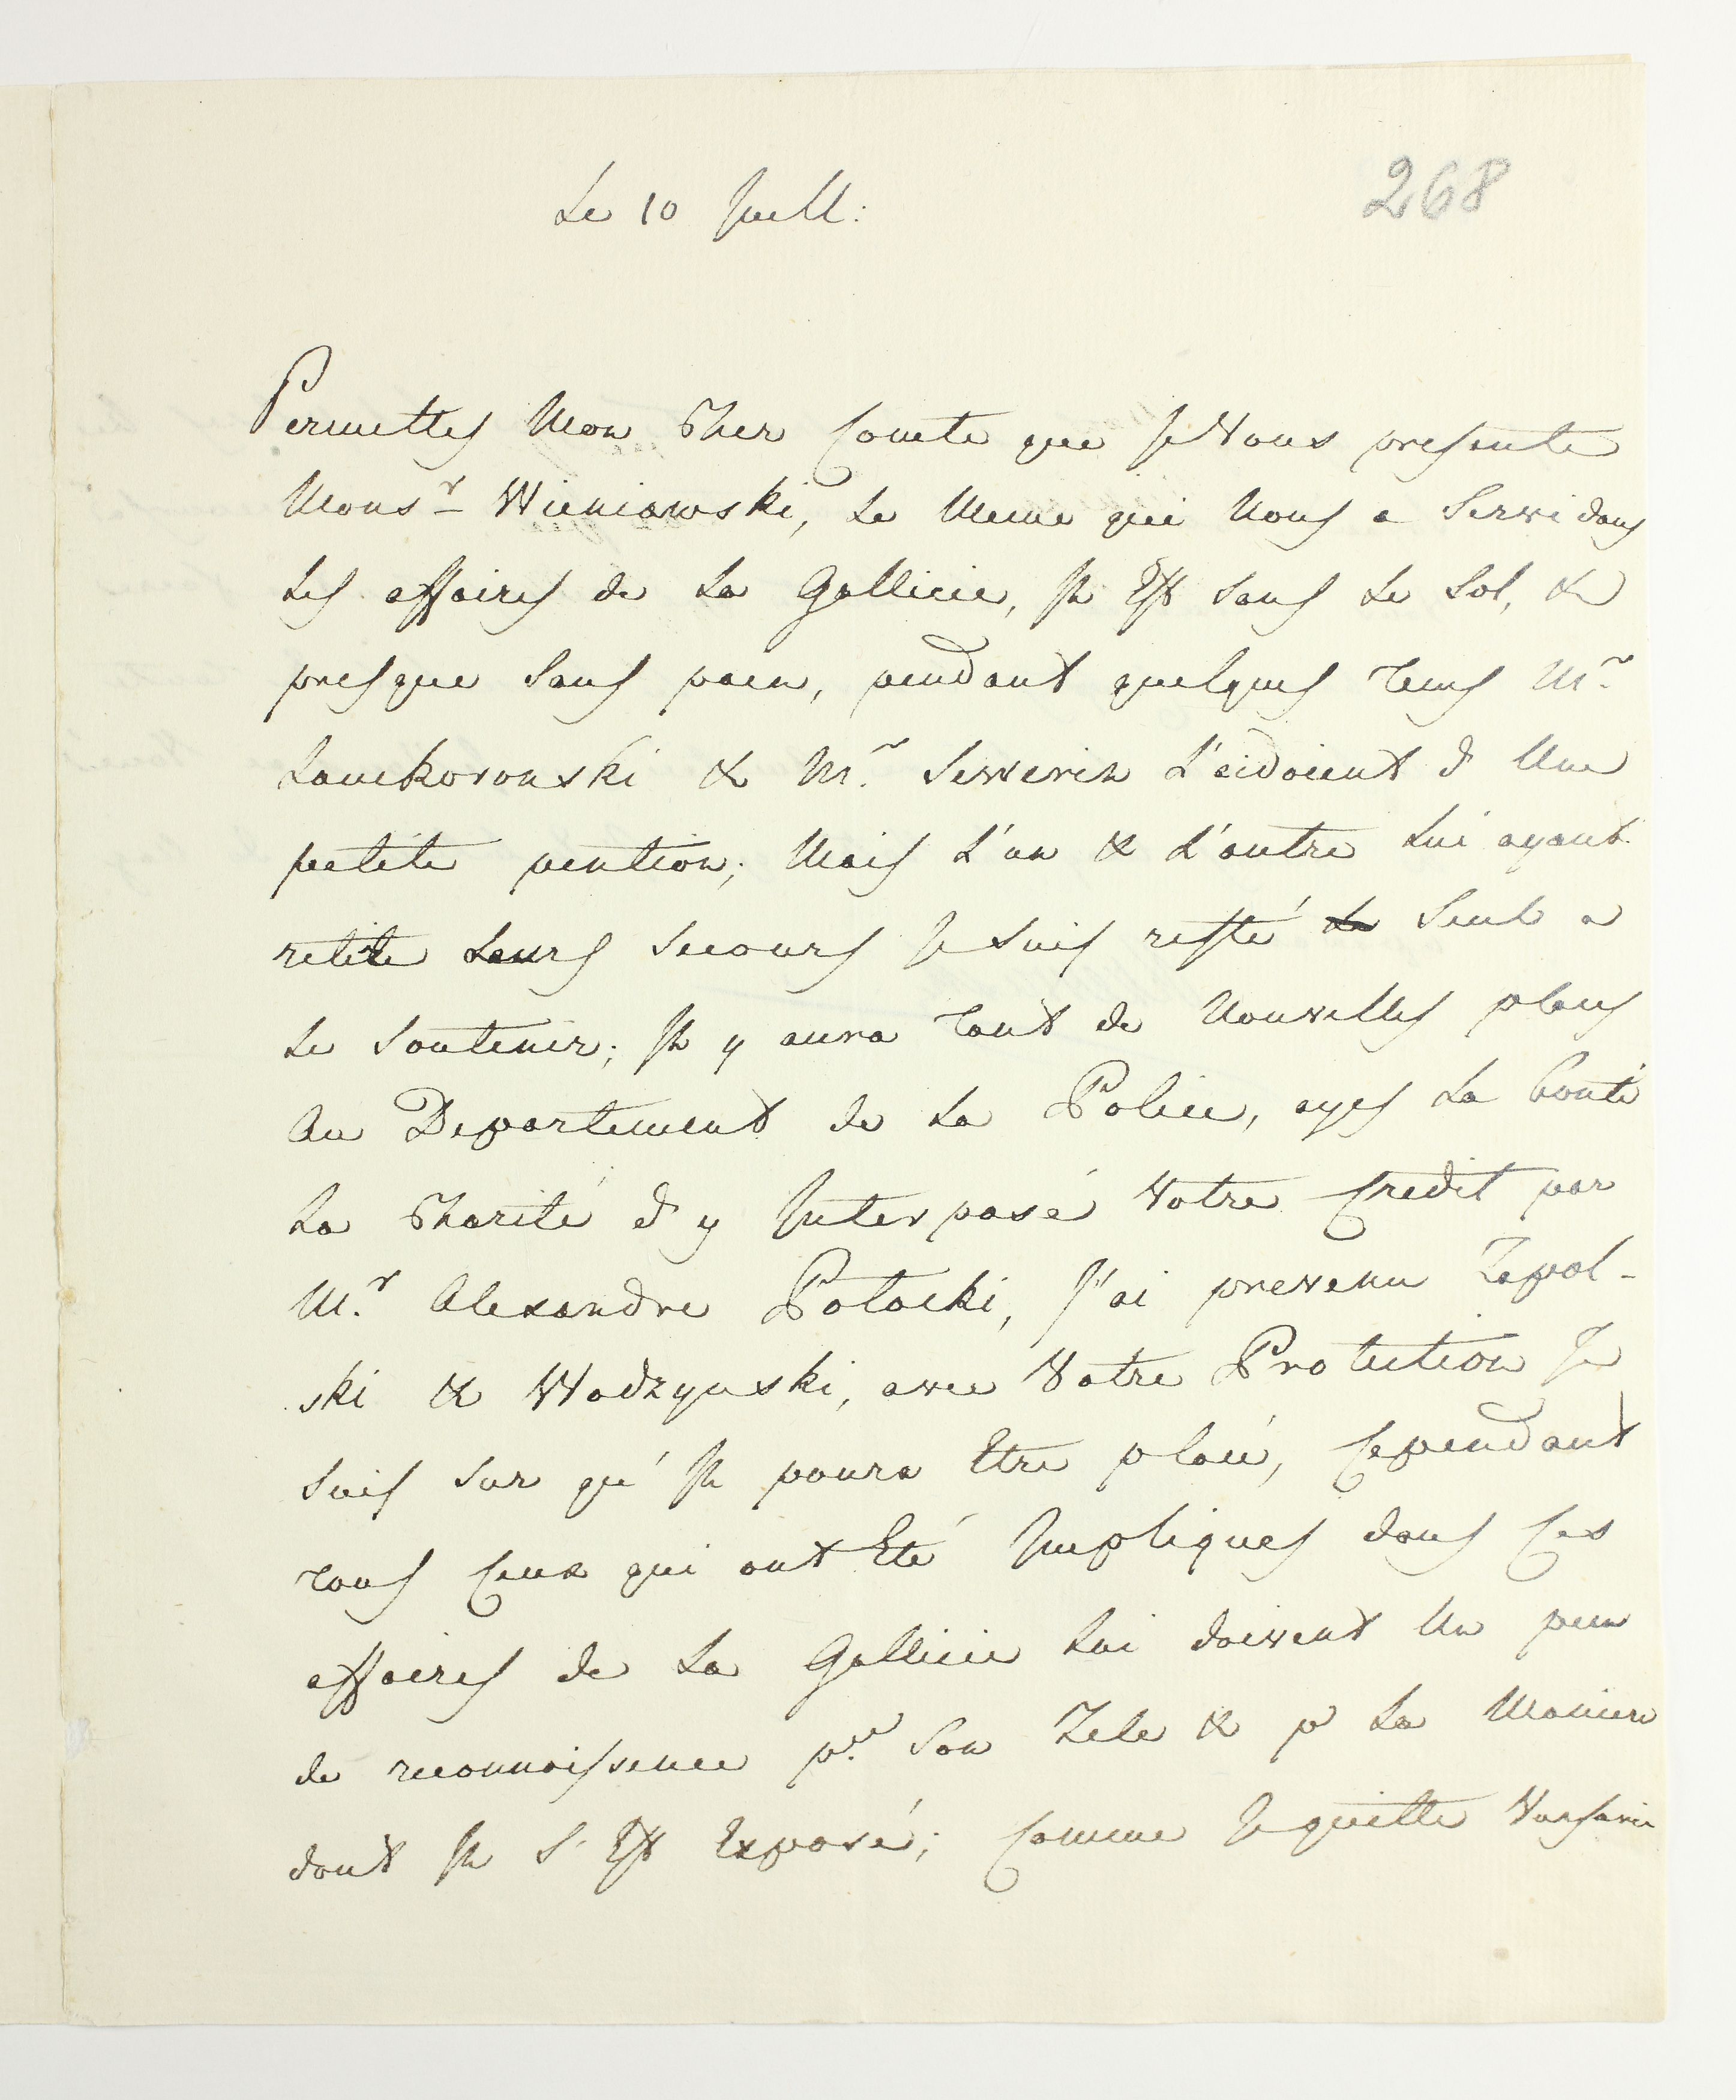 Le 10 Juill:
268
Permettes Mon Cher Comte que Je Vous presente
Mons.r Wieniawski, Le Meme qui Nous a Servi dans
Les affaires de La Gallicie, Il Est sans Le Sol, &
presque Sans pain, pendant quelques tems M.r
Lanckoronski & M.r Severin L'aidoient d'Une
petite pention; Mais L'un & L'autre Lui ayant
retité Leurs secours Je suis resté Seul a
Le Soutenir; Il y aura tant de Nouvelles places
Au Departement de La Police, ayes La bonté
La Charité d'y Interposé Votre Credit par
M.r Alexandre Potocki, J'ai prevenu Zapol-
ski & Wodzynski, avec Votre Protection Je
Suis Sur qu'Il poura Etre placé, Cependant
tous Ceux qui ont Eté Impliques dans Ces
affaires de La Gallicie Lui doivent Un peu
de reconnoissence p.r Son Zele & p.r La Maniere
dont Il S'Est Exposé; Comme Je quitte Varsovie